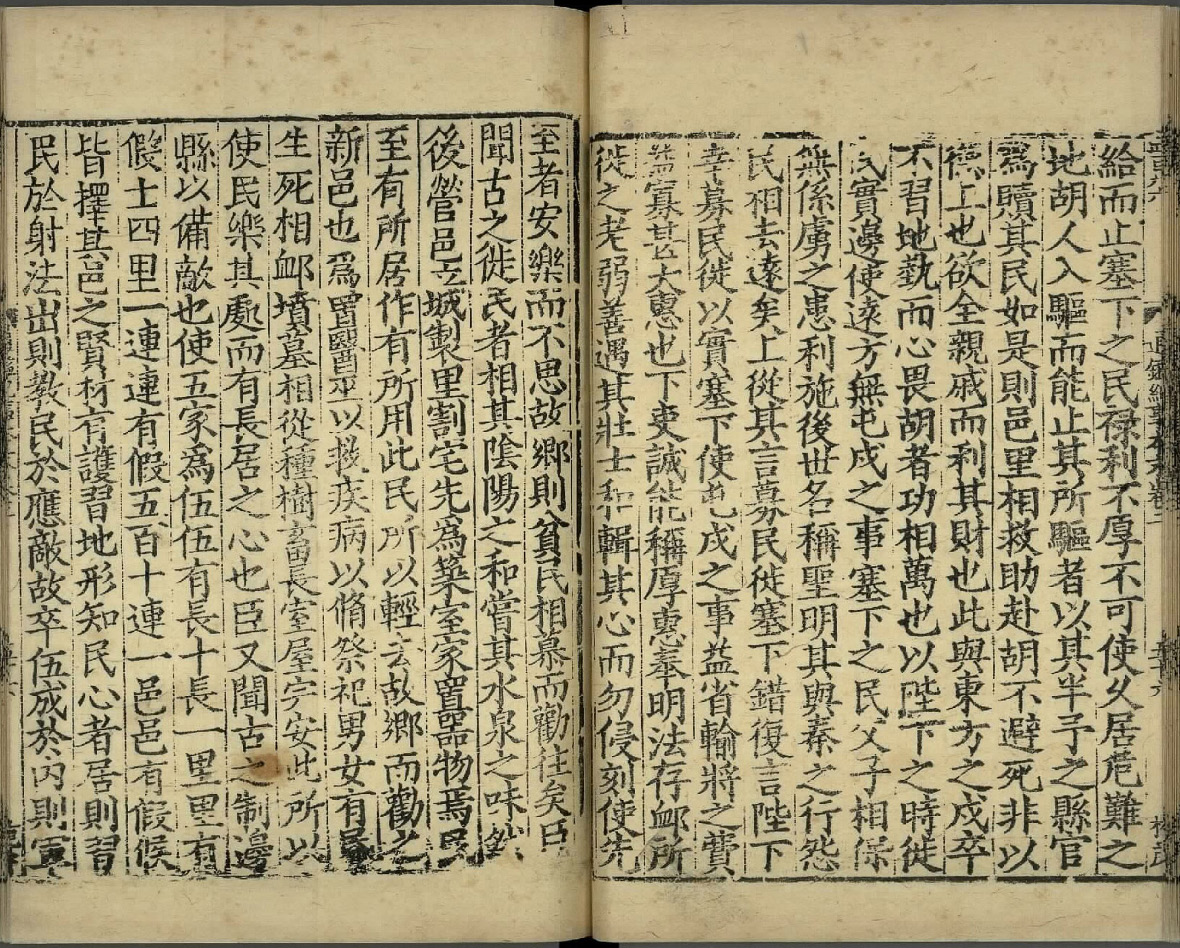 給而止塞下之民禄利不厚不可使乆居危難之
地胡人入驅而能止其所驅者以其半予之縣官
爲贖其民如是則邑里相救助赴胡不避死非以
德上也欲全親戚而利其財也此與東方之戍卒
不習地埶而心畏胡者功相萬也以陛下之時徙
民實邊使逺方無屯戍之事塞下之民父子相保
無係虜之患利施後世名稱聖明其與秦之行怨
民相去逺矣上從其言募民徙塞下錯復言陛下
幸募民徙以實塞下使屯戍之事益省輸將之費
益寡甚大惠也下吏誠能稱厚惠奉明法存衈所
徙之老弱善遇其壯士和輯其心而勿侵刻使先
至者安樂而不思故鄉則貧民相慕而勸往矣臣
聞古之徙民者相其陰陽之和嘗其水泉之味
後營邑立城製里割宅先爲築室家置噐物焉民
至有所居作有所用此民所以輕去故鄉而勸之
新邑也爲置醫巫以救疾病以脩祭祀男女有昬
生死相衈墳墓相從種樹畜長室屋完安此所以
使民樂其處而有長居之心也臣又聞古之制邊
縣以備敵也使五家爲伍伍有長十長一里里有
假士四里一連連有假五百十連一邑邑有假候
皆擇其邑之賢材有護習地形知民心者居則習
民於射法出則敎民於應敵故卒伍成於内則軍